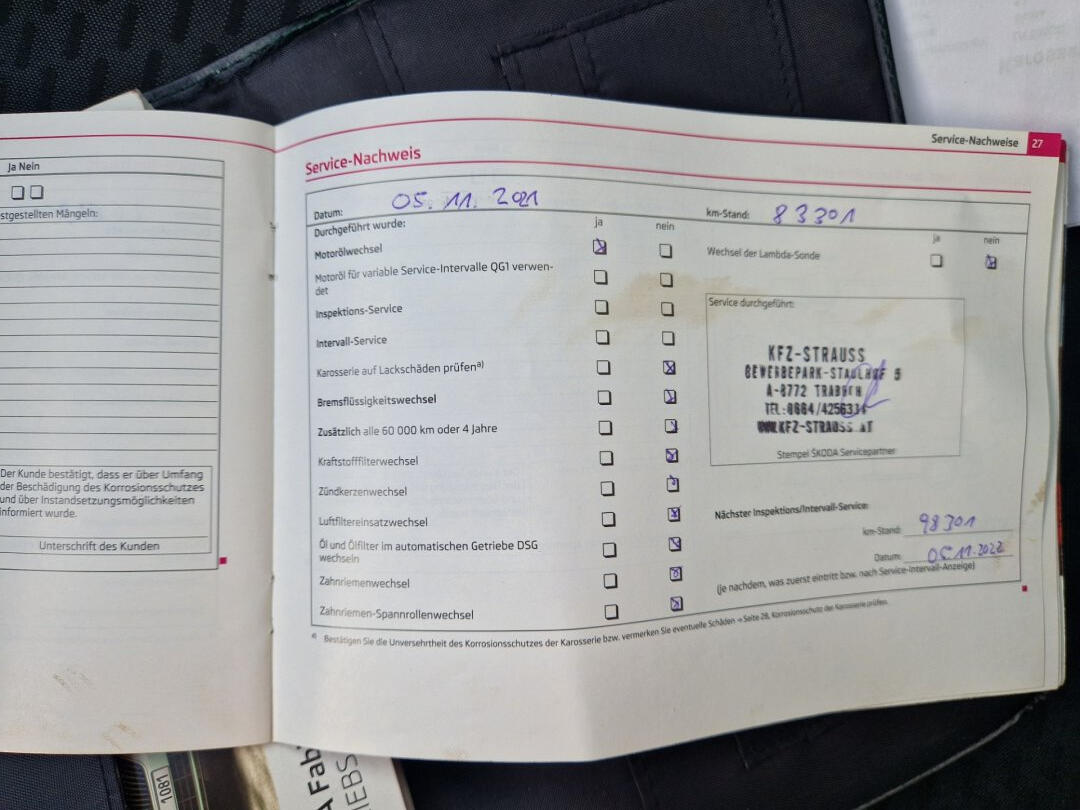 Ja Nein
stgestellten Mängeln:
Der Kunde bestätigt, dass er über Umfang
der Beschädigung des Korrosionsschutzes
und über Instandsetzungsmöglichkeiten
informiert wurde.
Unterschrift des Kunden
Service-Nachweise 27
Service-Nachweis
Datum: 05. 11. 2021
km-Stand: 83301
Durchgeführt wurde: ja nein
ja nein
Motorölwechsel
Wechsel der Lambda-Sonde
Motoröl für variable Service-Intervalle QG1 verwen-
det
Inspektions-Service
Intervall-Service
Karosserie auf Lackschäden prüfen a)
Bremsflüssigkeitswechsel
Zusätzlich alle 60 000 km oder 4 Jahre
Kraftstofffilterwechsel
Zündkerzenwechsel
Luftfiltereinsatzwechsel
Öl und Ölfilter im automatischen Getriebe DSG
wechseln
Zahnriemenwechsel
Zahnriemen-Spannrollenwechsel
Service durchgeführt:
KFZ-STRAUSS
GEWERBEPARK-STADLHOF 5
A-8772 TRABOCH
TEL.:0664/4256334
WWW.KFZ-STRAUSS.AT
Stempel ŠKODA Servicepartner
Nächster Inspektions/Intervall-Service:
km-Stand: 98301
Datum: 05.11.2022
(je nachdem, was zuerst eintritt bzw. nach Service-Intervall-Anzeige)
a) Bestätigen Sie die Unversehrtheit des Korrosionsschutzes der Karosserie bzw. vermerken Sie eventuelle Schäden ⇒ Seite 28, Korrosionsschutz der Karosserie prüfen.
A Fab
IEBS
1081